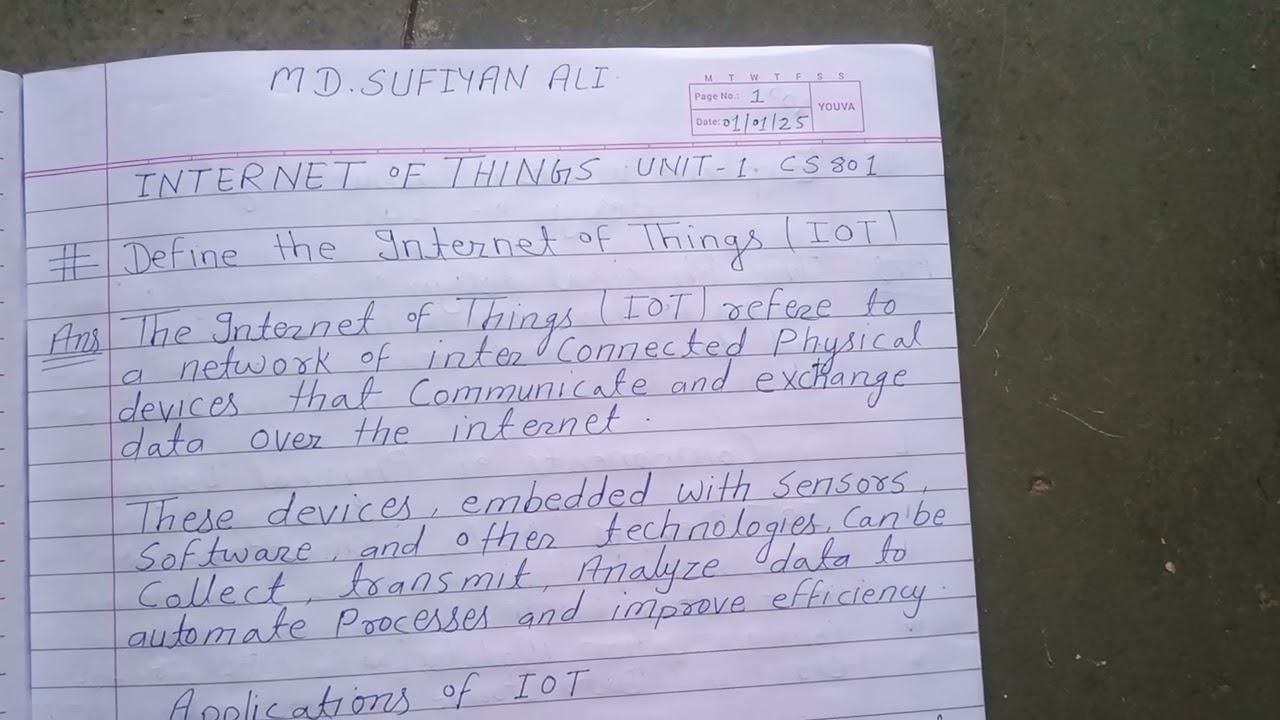 MD. SUFIYAN ALI
M T W T F S S
Page No.: 1
YOUVA
Date: 01/01/25
INTERNET OF THINGS UNIT-1. CS801
# Define the Internet of Things (IOT)
Ans The Internet of Things (IOT) refere to
a network of inter Connected Physical
devices that Communicate and exchange
data over the internet.
These devices, embedded with sensors,
Software, and other technologies, Can be
Collect, transmit, Analyze data to
automate Processes and improve efficiency.
Applications of IOT